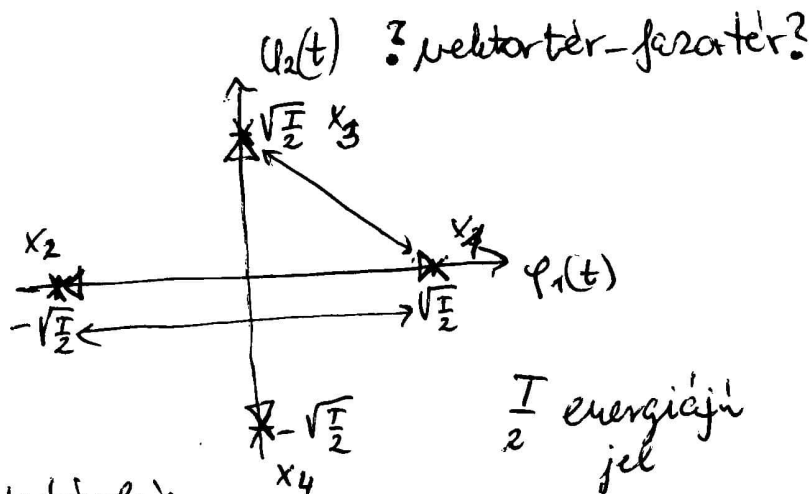 φ₂(t) ? vektortér-fazortér?
√T/2 x₃
x₂
x₁
φ₁(t)
-√T/2
√T/2
-√T/2
T/2 energiájú
jel
x₄